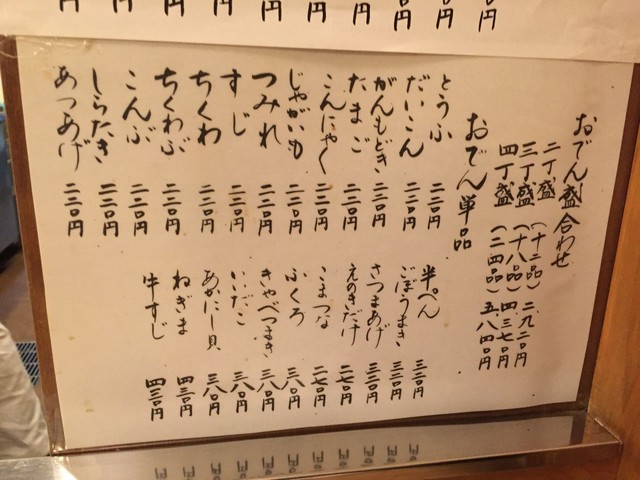 おでん盛合わせ
二丁盛（十二品）二、九二〇円
三丁盛（十八品）四、三七〇円
四丁盛（二四品）五、八四〇円
おでん単品
とうふ 二二〇円
だいこん 二二〇円
がんもどき 二二〇円
たまご 二二〇円
こんにゃく 二二〇円
じゃがいも 二二〇円
つみれ 二二〇円
すじ 二二〇円
ちくわ 二二〇円
ちくわぶ 二二〇円
こんぶ 二二〇円
しらたき 二二〇円
あつあげ 二二〇円
半ぺん 三二〇円
ごぼうまき 三二〇円
さつまあげ 三二〇円
えのきだけ 二七〇円
こまつな 二七〇円
ふくろ 三八〇円
きゃべつまき 三八〇円
いいだこ 三八〇円
あかにし貝 三八〇円
ねぎま 四三〇円
牛すじ 四三〇円